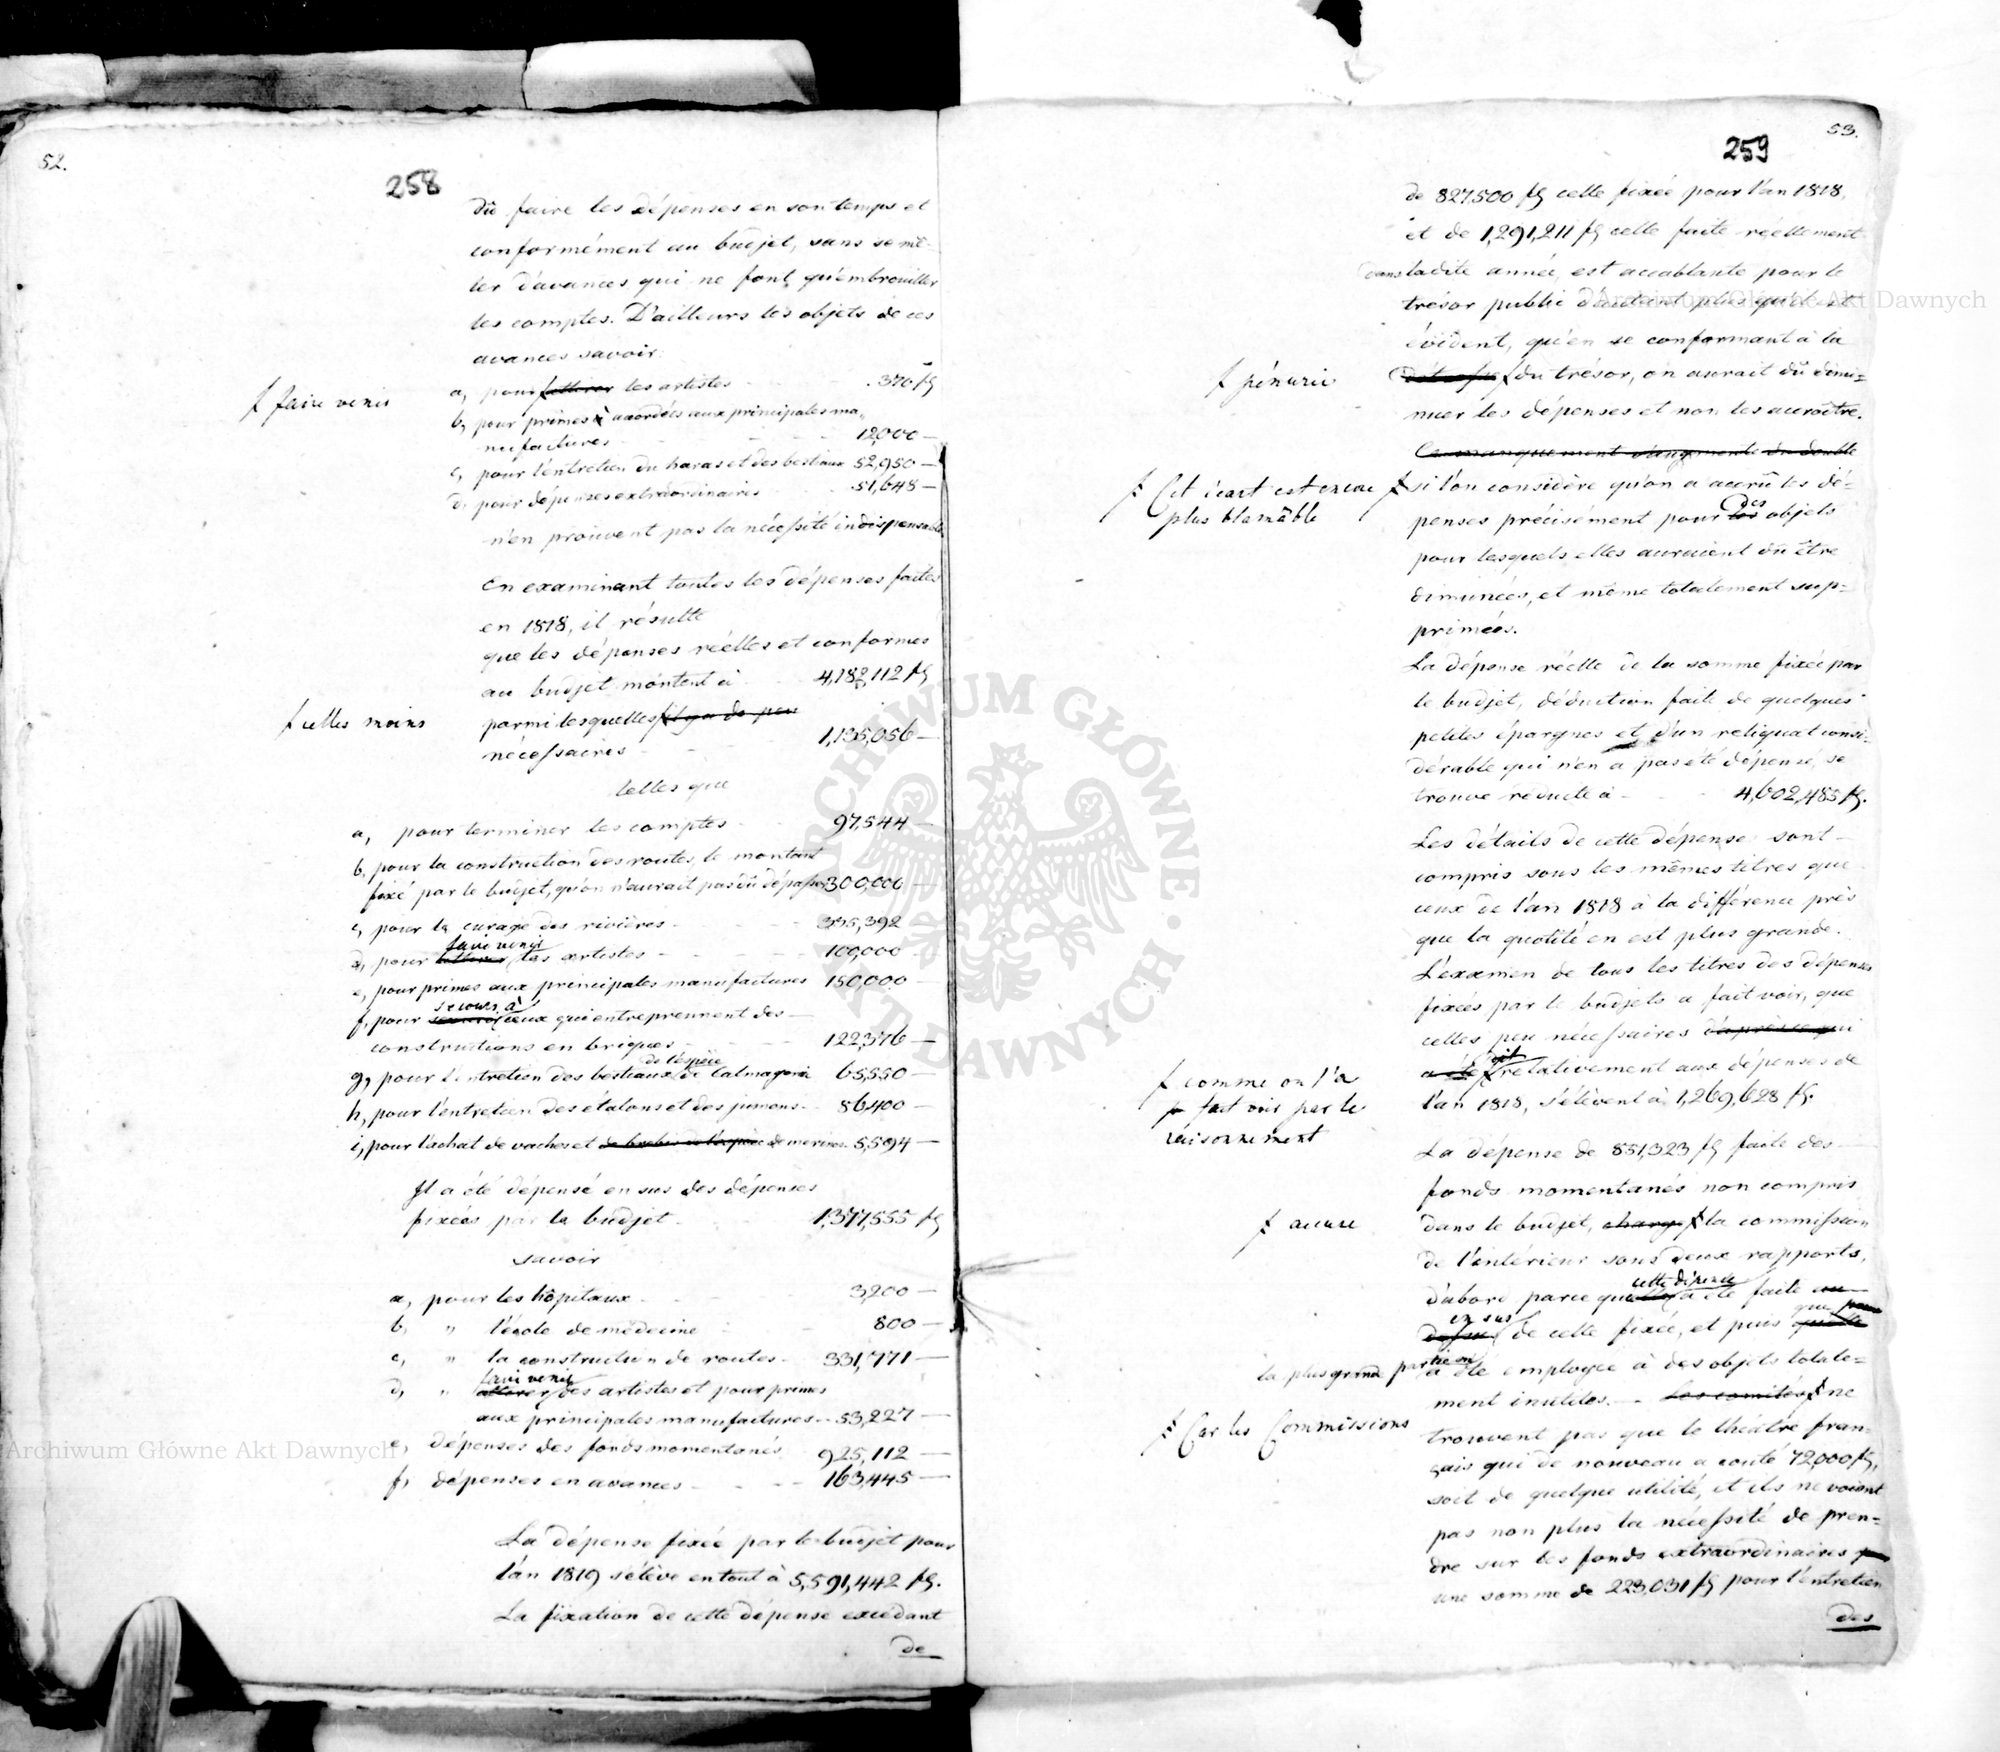 52.
258
dû faire les dépenses en son temps et
conformément au budjet, sans se mê-
ler d'avances qui ne font qu'embrouiller
les comptes. D'ailleurs les objets de ces
avances savoir:
a, pour attirer les artistes - . 370 fl
ƒ faire venir
b, pour primes accordées aux principales ma-
nufactures - - - 12,000 —
c, pour l'entretien du haras et des bestiaux 52,950 —
d, pour dépenses extraordinaires - 51,648 —
n'en prouvent pas la nécessité indispensable
En examinant toutes les dépenses faites
en 1818, il résulte
que les dépenses réelles et conformes
au budjet montent à - 4,182,112 fl
ƒ celles moins
parmi lesquelles ƒ il y a de peu
nécessaires - - 1,135,056 —
telles que
a, pour terminer les comptes - - 97,544 —
b, pour la construction des routes, le montant
fixé par le budjet, qu'on n'aurait pas dû dépasser 300,000 —
c, pour le curage des rivières - - 335,392
faire venir
d, pour attirer les artistes - - - 100,000 -
e, pour primes aux principales manufactures 150,000 -
secours à
f, pour ceux qui entreprennent des —
constructions en briques - - - 122,376 —
de l'espèce
g, pour l'entretien des bestiaux de Calmagorie 65,550 —
h, pour l'entretien des étalons et des jumens - 86,400 —
i, pour l'achat de vaches et de brebis de l'espèce de merinos. 5,594 —
Il a été dépensé en sus des dépenses
fixées par le budjet - - 1,377,555 fl
savoir
a, pour les hôpitaux - - 3,200 —
b, " l'école de médecine - - 800 —
c, " la construction de routes - 331,771 —
faire venir
d, " attirer des artistes et pour primes
aux principales manufactures - 53,227 —
e, dépenses des fonds momentanés 925,112 —
f, dépenses en avances - - - 163,445 —
La dépense fixée par le budjet pour
l'an 1819 s'élève en tout à 5,591,442 fl.
La fixation de cette dépense excédant
de
53.
259
de 827,500 fl celle fixée pour l'an 1818,
et de 1,291,211 fl celle faite réellement
dans ladite année, est accablante pour le
trésor public d'autant plus qu'il est
évident, qu'en se conformant à la
ƒ pénurie
ƒ du trésor, on aurait dû dimi=
nuer les dépenses et non les accroître.
Ce manquement s'augmente du double
ƒ Cet écart est encore
plus blamâble
ƒ si l'on considère qu'on a accrû les dé-
des
penses précisément pour les objets
pour lesquels elles auraient dû être
diminuées, et même totalement sup-
primées.
La dépense réelle de la somme fixée par
le budjet, déduction faite de quelques
petites épargnes et d'un reliquat consi-
dérable qui n'en a pas été dépensé, se
trouve réduite à - - - 4,602,485 fl.
Les détails de cette dépense sont —
compris sous les mêmes titres que
ceux de l'an 1818 à la différence près
que la quotité en est plus grande.
L'examen de tous les titres des dépenses
fixées par le budjets a fait voir, que
celles peu nécessaires d'après ce qui
dit
a été ƒ relativement aux dépenses de
ƒ comme on l'a
fait voir par le
raisonnement
l'an 1818, s'élèvent à 1,269,628 fl.
La dépense de 851,323 fl faite des —
fonds momentanés non compris
ƒ accuse
dans le budjet, charge ƒ la commission
de l'intérieur sous deux rapports,
cette dépense
d'abord parce qu'elle a été faite au
en sus
dessus de celle fixée, et puis qu'elle
que pour
la plus grande partie on
a été employée à des objets totale=
ment inutiles. — Les comités ƒ ne
ƒ Car les Commissions
trouvent pas que le théâtre fran-
çais qui de nouveau a couté 72,000 fl,
soit de quelque utilité, et ils ne voient
pas non plus la nécessité de pren=
dre sur les fonds extraordinaires
une somme de 223,031 fl pour l'entretien
des
Archiwum Główne Akt Dawnych
Archiwum Główne Akt Dawnych
ARCHIWUM GŁÓWNE AKT DAWNYCH